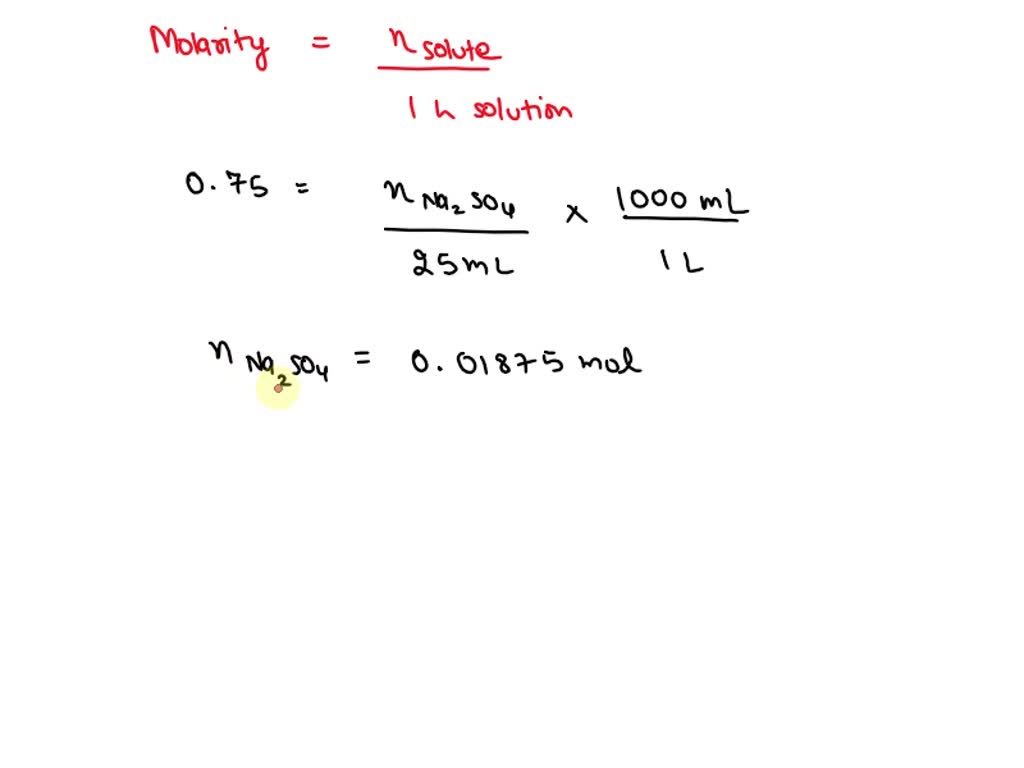 Molarity = n solute / 1 L solution
0.75 = n Na₂SO₄ / 25 mL × 1000 mL / 1 L
n Na₂SO₄ = 0.01875 mol